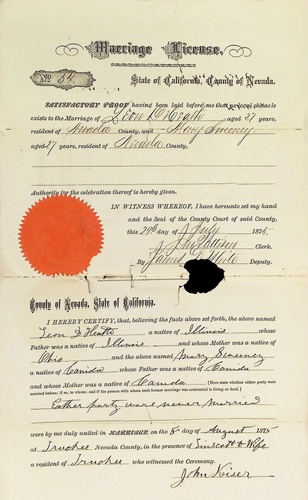 Marriage License.
No 54.
State of California, County of Nevada.
SATISFACTORY PROOF having been laid before me that no legal obstacle
exists to the Marriage of Leon D Heath aged 27 years,
resident of Nevada County, and Mary Sweeney
aged 27 years, resident of Nevada County,
Authority for the celebration thereof is hereby given.
IN WITNESS WHEREOF, I have hereunto set my hand
and the Seal of the County Court of said County,
this 29th day of July 1875.
Clerk.
By James Deputy.
County of Nevada, State of California.
I HEREBY CERTIFY, that believing the facts above set forth, the above named
Leon D Heath a native of Illinois whose
Father was a native of Illinois and whose Mother was a native of
Ohio and the above named Mary Sweeney
a native of Canida whose Father was a native of Canida
and whose Mother was a native of Canida (Here state whether either party were married
before; if so, to whom; and if the person with whom such former marriage was contracted is living or dead.)
Eather party ware never married
were by me duly united in Marriage on the 5 day of August 1875
at Truckee Nevada County, in the presence of & Wife
a resident of Truckee who witnessed the Ceremony.
John Keiser